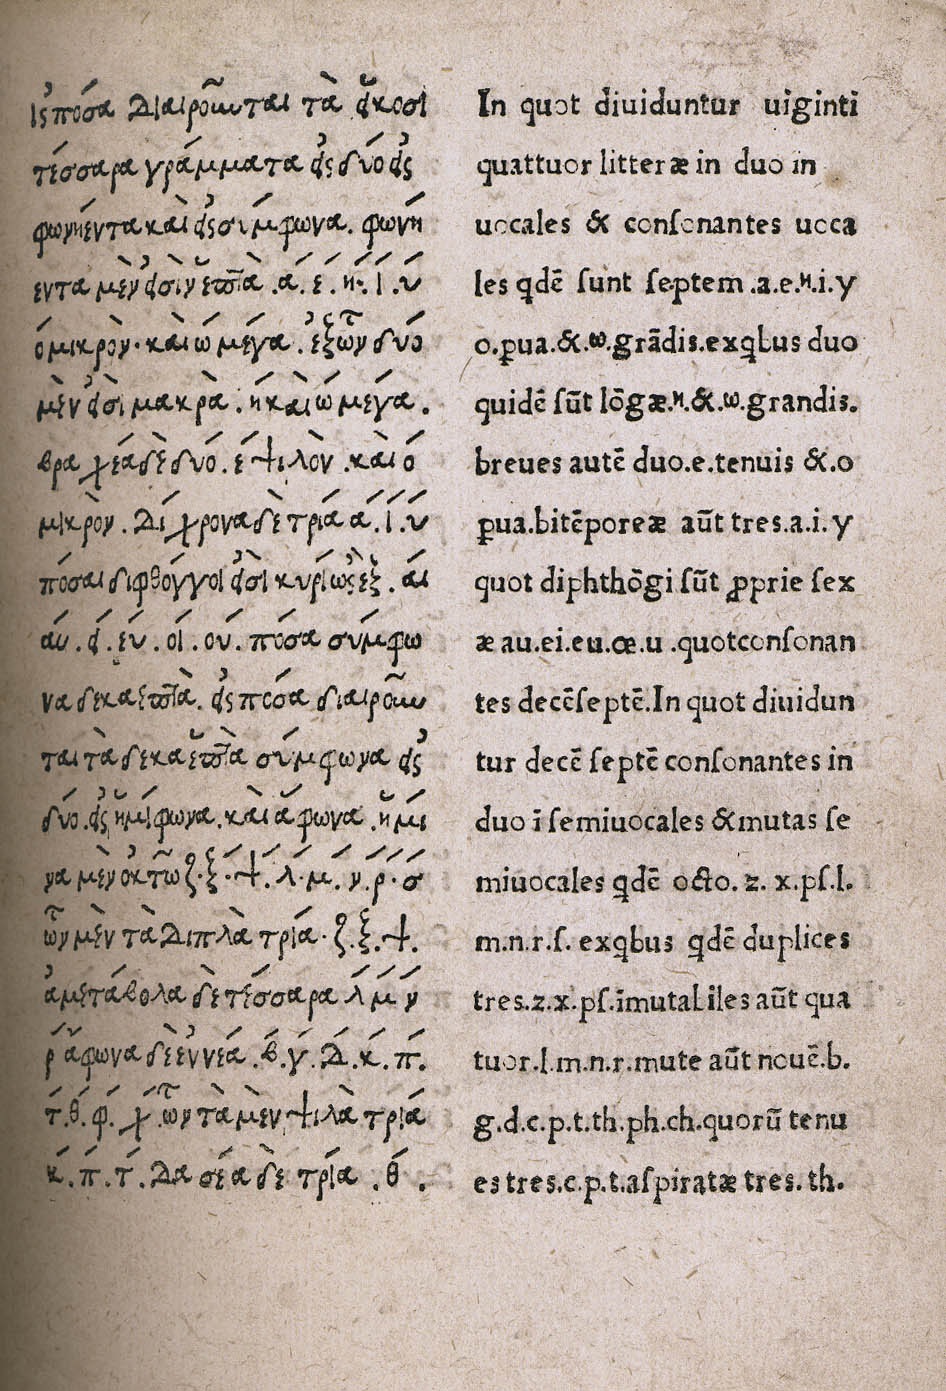 Ἰς πόσα Διαιροῦνται τὰ εἴκοσι
τέσσαρα γράμματα εἰς δύο εἰς
φωνήεντα καὶ εἰς σύμφωνα. φωνή
εντα μὲν εἰσὶν ἑπτὰ .ά. έ . ή. ί . ύ
ό μικρὸν . καὶ ώ μέγα . ἐξ ὧν δύο
μὲν εἰσὶ μακρὰ . ή καὶ ώ μέγα .
βραχέα δὲ δύο . έ ψιλὸν .καὶ ό
μίκρον . Δίχρονα δὲ τρία ά . ί . ύ
πόσαι δίφθογγοι εἰσὶ κυρίως ἓξ . αί
αύ . εί . εύ . οί . ού . πόσα σύμφω
να δεκαεπτὰ. εἰς πόσα διαιροῦν
ται τὰ δεκαεπτὰ σύμφωνα εἰς
δύο .εἰς ἡμίφωνα .καὶ ἄφωνα .ἡμί
να μὲν ὀκτῶ ζ . ξ . ψ . λ . μ . ν . ρ . σ
ὧν μὲν τὰ Διπλὰ τρία . ζ. ξ. ψ.
ἀμετάβολα δὲ τέσσαρα λ μ ν
ρ ἄφωνα δὲ ἐννέα . β . γ . Δ . κ . π .
τ . θ . φ . χ . ὧν τὰ μὲν ψιλὰ τρία
κ . π . τ . Δασέα δὲ τρία . θ .
In quot diuiduntur uiginti
quattuor litteræ in duo in
uocales & consonantes uoca
les qdē ſunt ſeptem .a.e.η.i.y
o.ꝑua.&.ω.grādis.exqbus duo
quidē ſūt lōgæ.η.&.ω.grandis.
breues autē duo.e.tenuis &.o
ꝑua.bitēporeæ aūt tres.a.i.y
quot diphthōgi ſūt ꝓprie ſex
æ au.ei.eu.œ.u .quotconſonan
tes decēſeptē.In quot diuidun
tur decē ſeptē conſonantes in
duo ī ſemiuocales &mutas ſe
miuocales qdē octo. z. x.pſ.l.
m.n.r.ſ. exqbus qdē duplices
tres.z.x.pſ.īmutabiles aūt qua
tuor.l.m.n.r.mute aūt nouē.b.
g.d.c.p.t.th.ph.ch.quorū tenu
es tres.c.p.t.aſpiratæ tres. th.